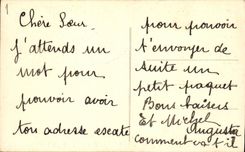 1
Chère Sœur
j'attends un
mot pour
pouvoir avoir
ton adresse escate
pour pouvoir
t'envoyer de
suite un
petit paquet
Bons baisers
Et Michel
Augusta
comment va t il